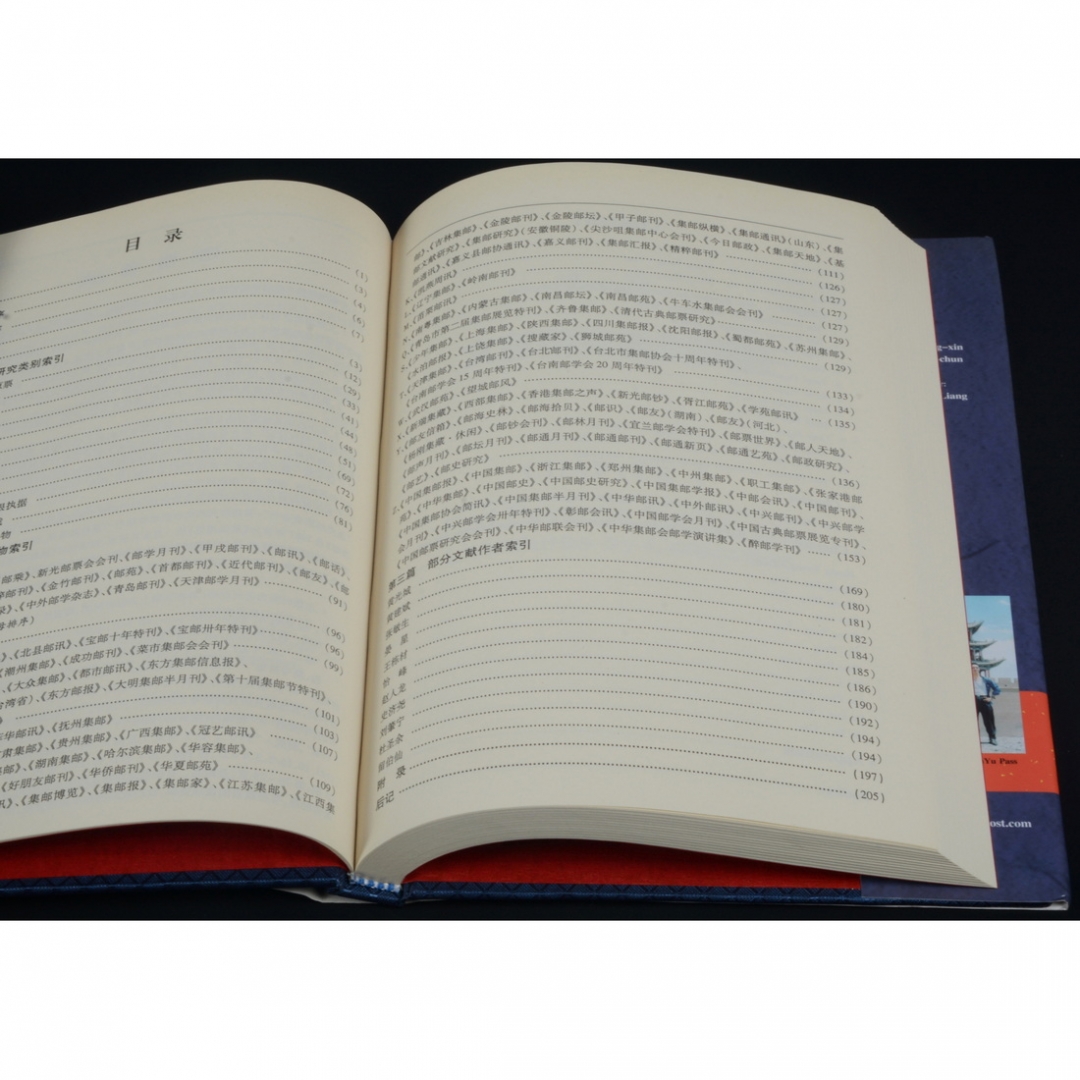 目 录
(1)
(3)
(4)
(6)
(7)
研究类别索引
(3)
(12)
(29)
(33)
(41)
(44)
(48)
(51)
(69)
(72)
执据
(76)
(81)
物索引
邮乘》、新光邮票会会刊、《邮学月刊》、《甲戌邮刊》、《邮讯》、《邮话》、
邮刊》、《金竹邮刊》、《邮苑》、《首都邮刊》、《近代邮刊》、《邮友》、《邮
》、《中外邮学杂志》、《青岛邮刊》、《天津邮学月刊》 (91)
排序)
》、《北县邮讯》、《宝邮十年特刊》、《宝邮卅年特刊》 (96)
(96)
《潮州集邮》、《成功邮刊》、《菜市集邮会会刊》 (99)
、《大众集邮》、《都市邮讯》、《东方集邮信息报》、
台湾省)、《东方邮报》、《大明集邮半月刊》、《第十届集邮节特刊》、
》 (101)
华邮讯》、《抚州集邮》 (103)
甘肃集邮》、《贵州集邮》、《广西集邮》、《冠艺邮讯》 (107)
邮》、《湖南集邮》、《哈尔滨集邮》、《华容集邮》、
《好朋友邮刊》、《华侨邮刊》、《华夏邮苑》 (109)
讯》、《集邮博览》、《集邮报》、《集邮家》、《江苏集邮》、《江西集
邮》、《吉林集邮》、《金陵邮刊》、《金陵邮坛》、《甲子邮刊》、《集邮纵横》、《集邮通讯》(山东)、《集
邮文献研究》、《集邮研究》(安徽铜陵)、《尖沙咀集邮中心会刊》、《今日邮政》、《集邮天地》、《基
邮通讯》、《嘉义县邮协通讯》、《嘉义邮刊》、《集邮汇报》、《精粹邮刊》 (111)
K、《凯燕周讯》 (126)
L、《辽宁集邮》、《岭南邮刊》 (127)
M、 (127)
N、《南粤集邮》、《内蒙古集邮》、《南昌邮坛》、《南昌邮苑》、《牛车水集邮会会刊》 (127)
Q、《青岛市第二届集邮展览特刊》、《齐鲁集邮》、《清代古典邮票研究》 (129)
S、《少年集邮》、《上海集邮》、《陕西集邮》、《四川集邮报》、《沈阳邮报》、《蜀都邮苑》、《苏州集邮》、
《水泊邮报》、《上饶集邮》、《搜藏家》、《狮城邮苑》 (129)
T、《天津集邮》、《台湾邮刊》、《台北邮刊》、《台北市集邮协会十周年特刊》、
《台南邮学会 15 周年特刊》、《台南邮学会 20 周年特刊》 (133)
W、《武汉邮苑》、《望城邮风》 (134)
X、《新疆集藏》、《西部集邮》、《香港集邮之声》、《新光邮钞》、《胥江邮苑》、《学苑邮讯》 (135)
Y、《邮友信箱》、《邮海史林》、《邮海拾贝》、《邮识》、《邮友》(湖南)、《邮友》(河北)、
《扬雨集藏·休闲》、《邮钞会刊》、《邮林月刊》、《宜兰邮学会特刊》、《邮票世界》、《邮人天地》、
《邮声月刊》、《邮坛月刊》、《邮通月刊》、《邮通邮刊》、《邮通新页》、《邮通艺苑》、《邮政研究》、
《邮艺》、《邮史研究》 (136)
Z、《中国集邮报》、《中国集邮》、《浙江集邮》、《郑州集邮》、《中州集邮》、《职工集邮》、《张家港邮
苑》、《中华集邮》、《中国邮史》、《中国邮史研究》、《中国集邮学报》、《中邮会讯》、《中国邮刊》、
《中国集邮协会简讯》、《中国集邮半月刊》、《中华邮讯》、《中外邮讯》、《中兴邮刊》、《中兴邮学
会月刊》、《中兴邮学会卅年特刊》、《彰邮会讯》、《中国邮学会月刊》、《中国古典邮票展览专刊》、
《中国邮票研究会会刊》、《中华邮联会刊》、《中华集邮会邮学演讲集》、《醉邮学刊》 (153)
第三篇 部分文献作者索引
(169)
(180)
(181)
(182)
(184)
(185)
赵人龙 (186)
史济尧 (190)
刘肇宁 (192)
杜圣余 (194)
(194)
附 录 (197)
后记 (205)
g-xin
chun
Liang
Yu Pass
ost.com